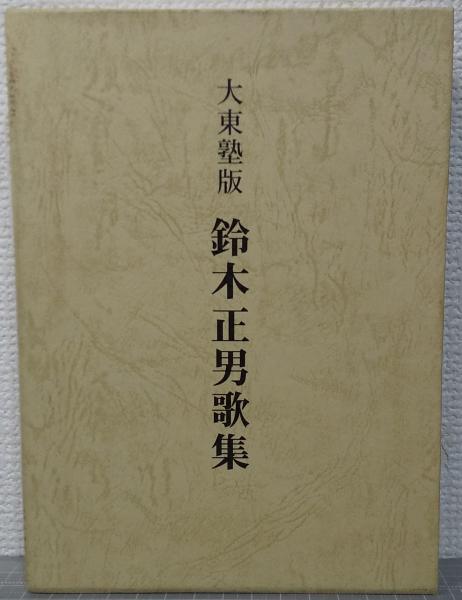 大東塾版 鈴木正男歌集